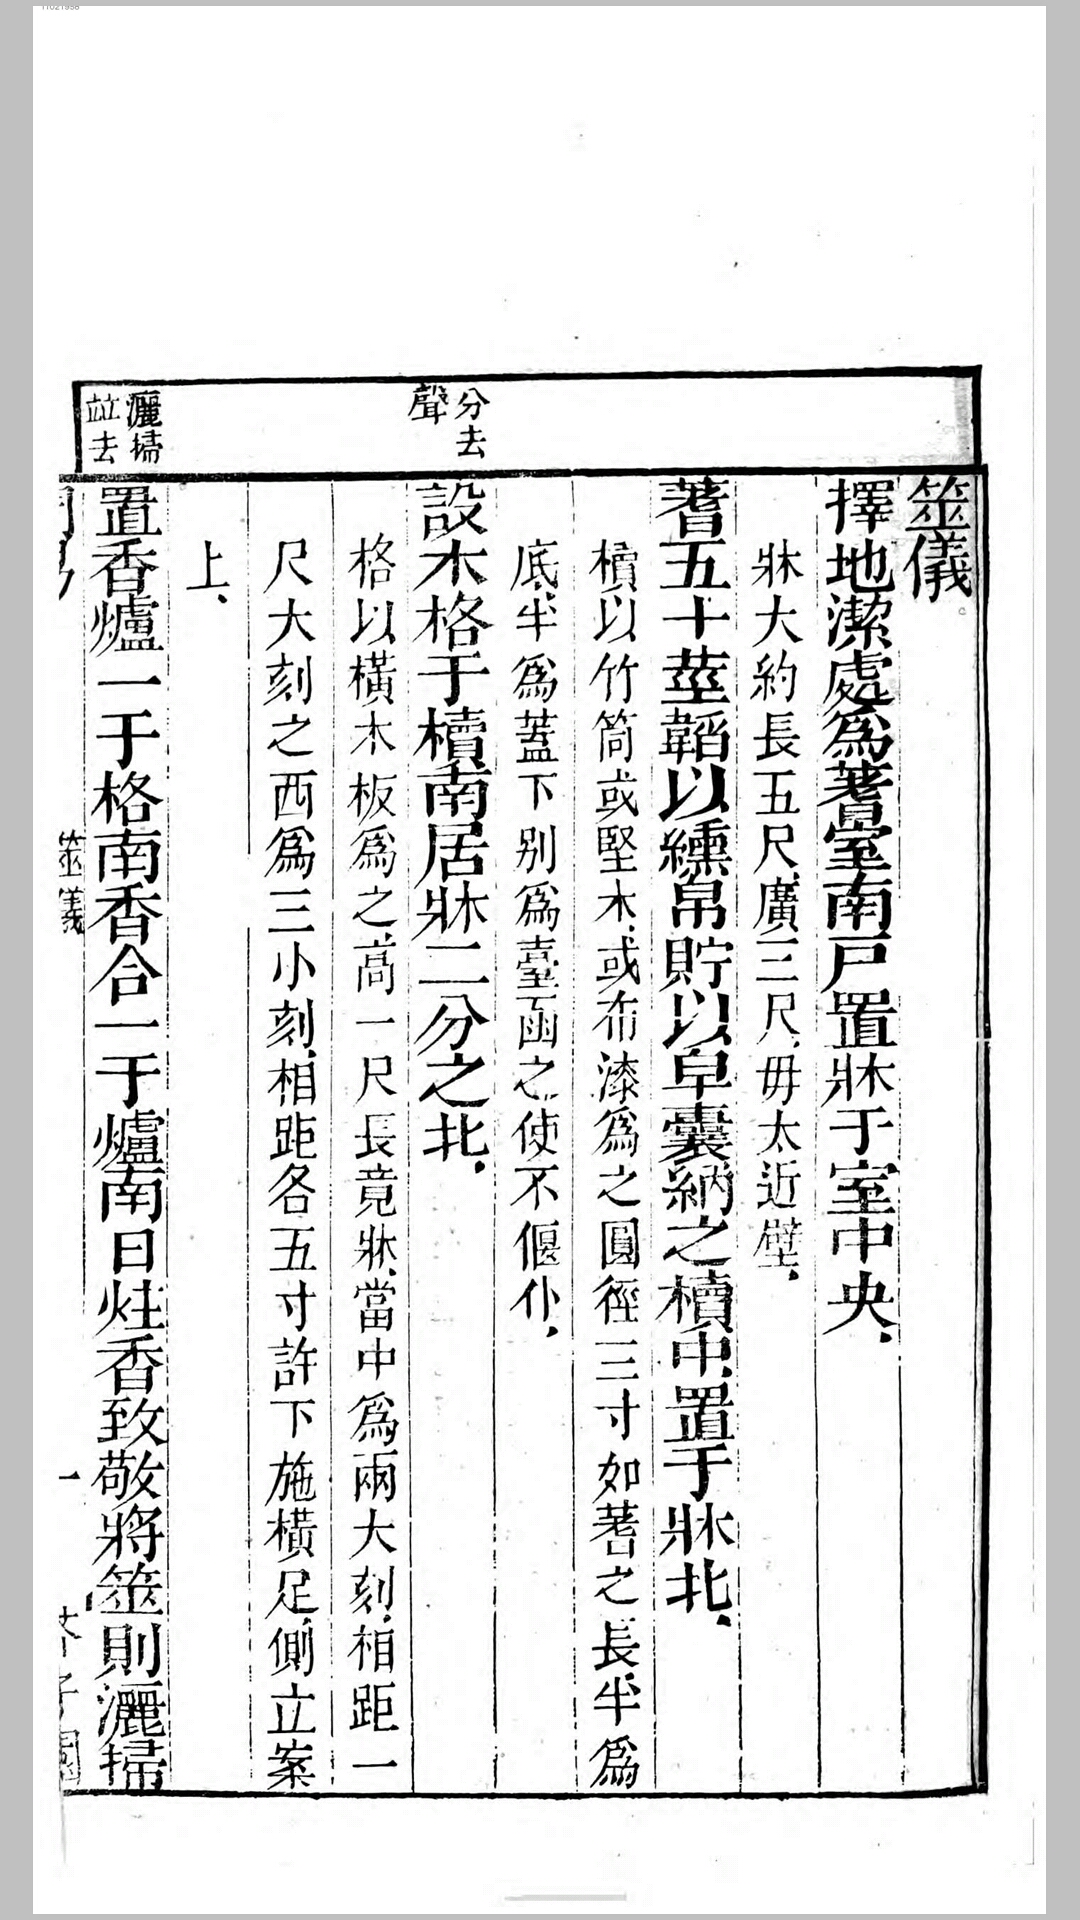 11021958
分去
聲
灑掃
竝去
筮儀
擇地潔處爲蓍室南戸置牀于室中央、
牀大約長五尺、廣三尺、毋太近壁、
蓍五十莖韜以纁帛貯以皁囊納之櫝中、置于牀北、
櫝以竹筒或堅木、或布漆爲之、圓徑三寸如蓍之長、半爲
底、半爲蓋下别爲臺函之、使不偃仆、
設木格于櫝南居牀二分之北、
格以橫木板爲之、高一尺長竟牀、當中爲兩大刻、相距一
尺大刻之西爲三小刻、相距各五寸許下施橫足、側立案
上、
置香爐一于格南香合一于爐南日炷香致敬將筮則灑掃
筮儀
一